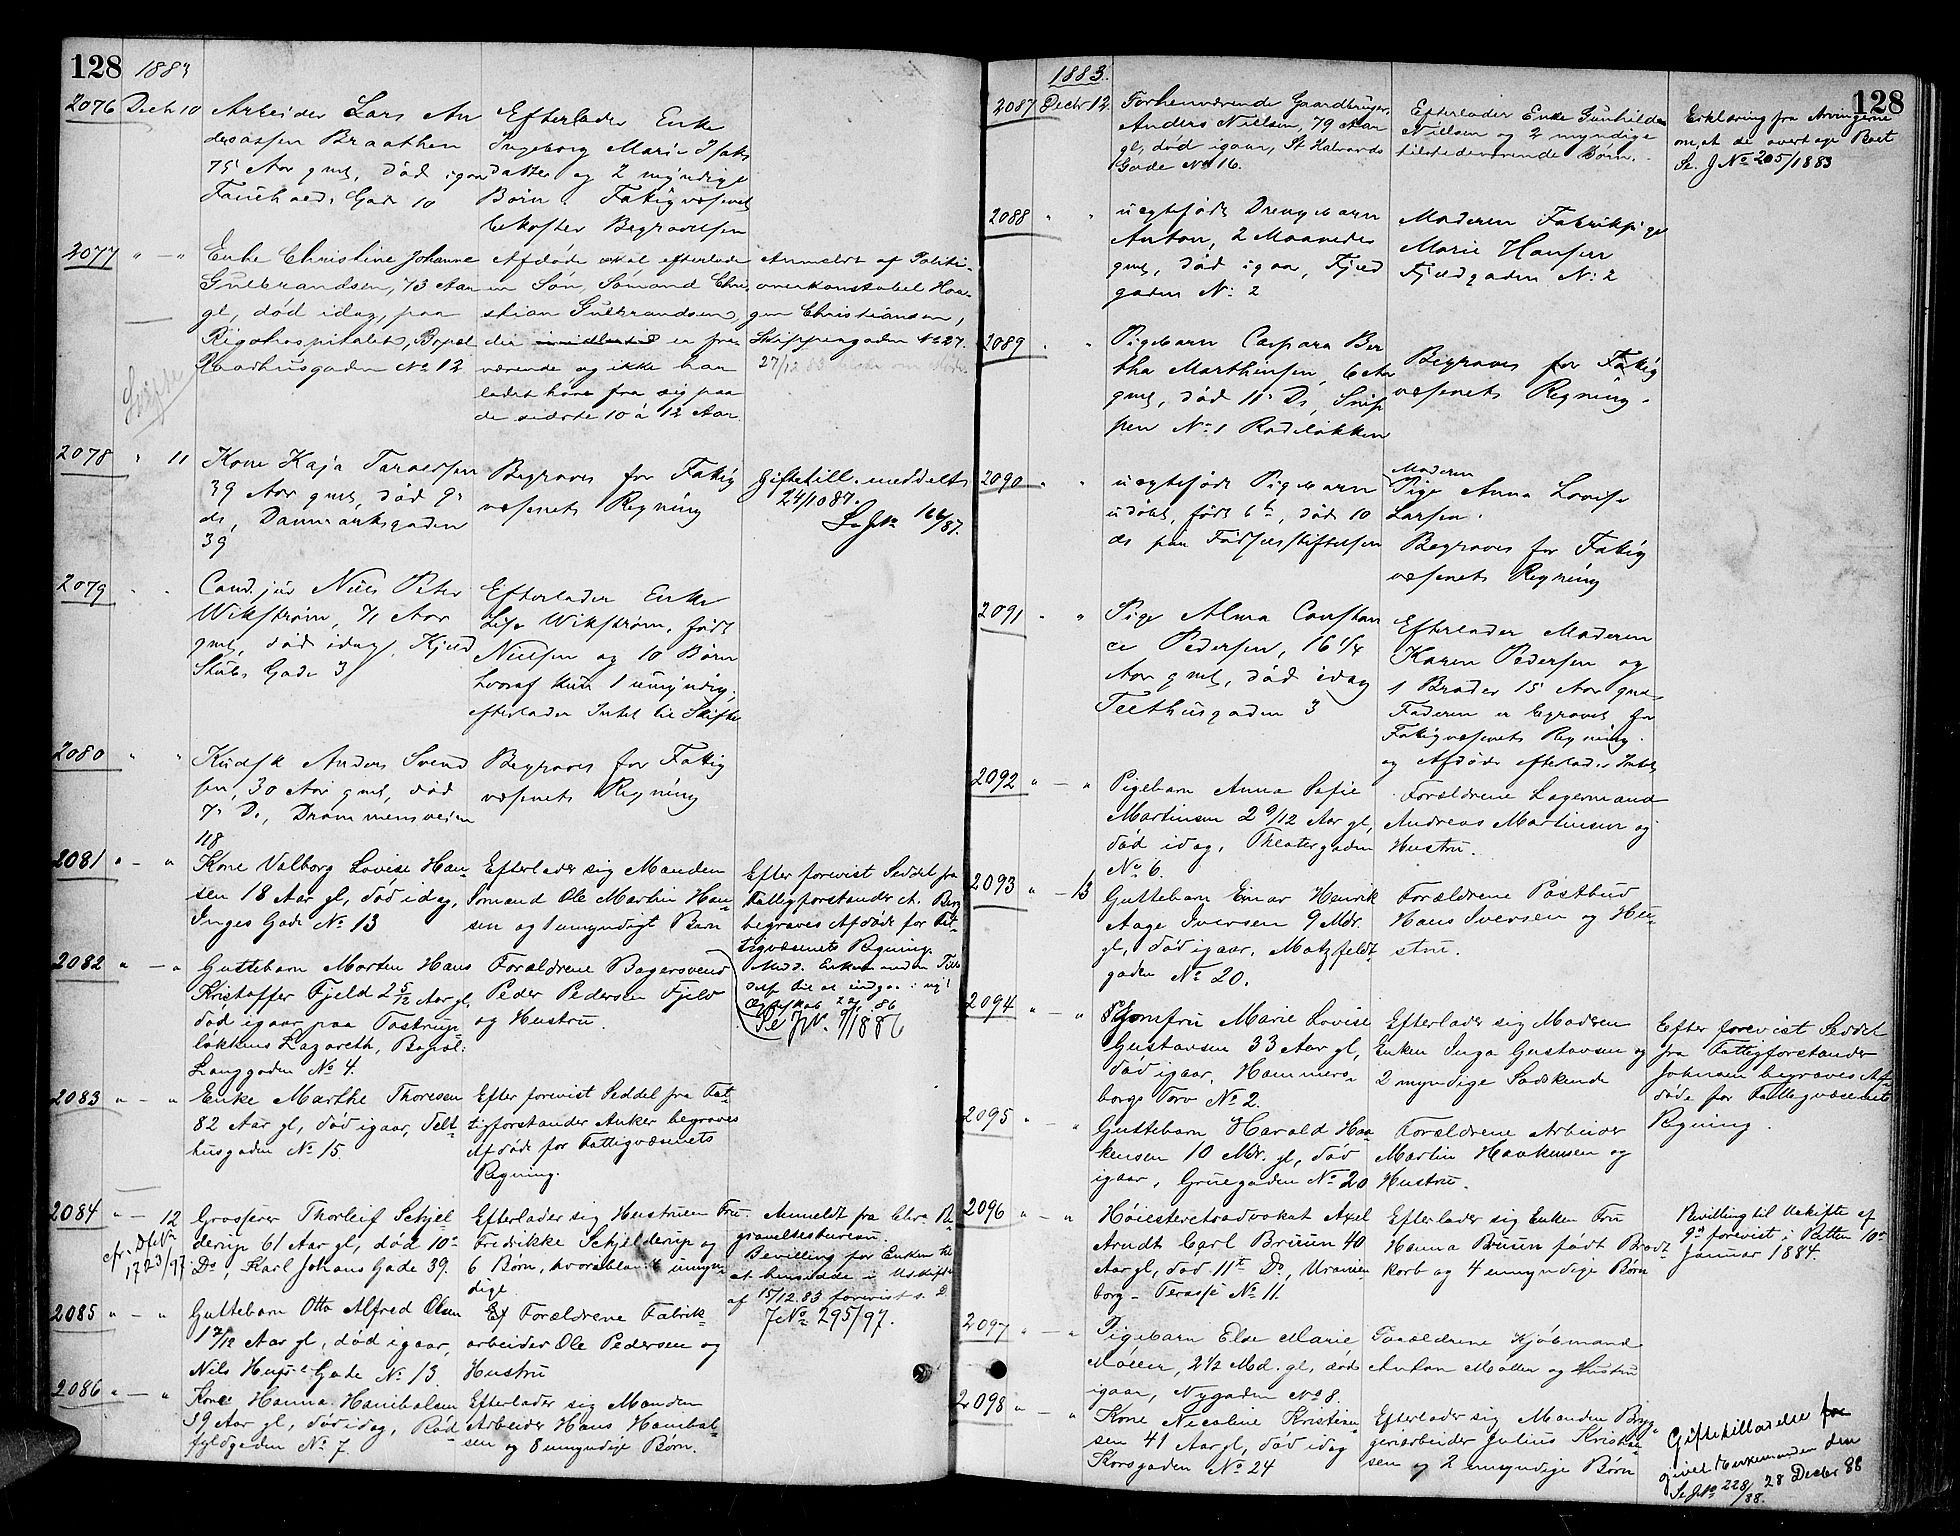 128 1883
2076 Decbr 10 Arbeider Lars An
dersen Braathen
75 Aar gml, død igaar
Gade 10
Efterlader Enke
Ingeborg Marie Isaks
datter og 2 myndige
Børn. Fatigvæsenet
bekoster Begravelsen
2077 " — " Enke Christine Johanne
Gulbrandsen, 73 Aar
gl, død idag, paa
Rigshospitalet, Bopæl
Raadhusgaden No 12
Afdøde skal efterlade
en Søn, Sømand Chri-
stian Gulbrandsen,
der imidlertid er fra-
værende og ikke har
ladet høre fra sig paa
de sidste 10 à 12 Aar.
Anmeldt af Politi-
overkonstabel Haa-
gen Christiansen,
Skippergaden No 27.
27/12 83
2078 " 11 Kone Kaja Tarvedsen
39 Aar gml, død 9'
ds, Danmarksgaden
39
Begraves for Fatig
væsenets Regning
Giftetill. meddelt
24/10 87.
Se JNo 166/87.
2079 " " Cand. jur Niels Peter
Wikstrøm, 71 Aar
gml, død idag, Kjeld
Stubs Gade 3
Efterlader Enke
Lise Wikstrøm, født
Nielsen og 10 Børn
hvoraf kun 1 umyndig,
efterlader Intet til Skifte
2080 " " Kudsk Anders Svend
sen, 30 Aar gml, død
7' D., Drammensveien
118
Begraves for Fatig
væsenets Regning
2081 " — " Kone Valborg Lovise Han-
sen 18 Aar gl, død idag,
Inges Gade No 13
Efterlader sig Manden
Sømand Ole Martin Han-
sen og 1 umyndigt Barn
Efter forevist Seddel fra
Fattigforstander A. Berg
begraves Afdøde for Fat-
tigvæsenets Regning.
Medd. Enkemanden Till-
til at indgaa i nyt
Ægteskab 86
Se JN. 7/1886
2082 " — " Guttebarn Morten Hans
Kristoffer Fjeld 2 5/12 Aar gl,
død igaar paa Tostrup-
løkkens Lazareth, Bopæl:
Langgaden No 4.
Forældrene Bagersvend
Peder Pedersen Fjeld
og Hustru.
2083 " — " Enke Marthe Thoresen
82 Aar gl, død igaar, Telt-
husgaden No 15.
Efter forevist Seddel fra Fat-
tigforstander Anker begraves
Afdøde for Fattigvæsenets
Regning.
2084 " — 12 Grosserer Thorleif Schjel-
derup 61 Aar gl, død 10de
Ds, Karl Johans Gade 39.
cfr. DfNo
1723/97
Efterlader sig Hustruen Fru
Fredrikke Schjelderup og
6 Børn, hvoraf umyn-
dige.
Anmeldt fra Chra Be-
gravelsesbureau.
Bevilling for Enken til
at hensidde i Uskifte
af 15/12.83 forevist s. D
JNo 295/97.
2085 " — " Guttebarn Otto Alfred Olsen
1 7/12 Aar gl, død igaar,
Nils Huus' Gade No 13.
Forældrene Fabrik-
arbeider Ole Pedersen og
Hustru
2086 " — " Kone Hanna Hanibalsen
39 Aar gl, død idag, Rød-
fyldgaden No 7.
Efterlader sig Manden
Arbeider Hans Hanibal-
sen og 8 umyndige Børn.
1883. 128
2087 Decbr 12. Forhenværende Gaardbruger
Anders Nielsen, 79 Aar
gl, død igaar, St Halvards
Gade No 16.
Efterlader Enke Gunhilde
Nielsen og 2 myndige
tilstedeværende Børn.
Erklæring fra Arvingerne
om, at de overtage Boet
Se. J No 205/1883
2088 " " uegtefødt Drengebarn
Anton, 2 Maaneder
gml, død igaar, Fjeld
gaden No 2
Moderen Fabrikpige
Marie Hansen
Fjeldgaden No 2
2089 " " Pigebarn Caspara Ber
tha Marthinsen, 6 Aar
gml, død 11' Ds, Snip
pen No 1 Rodeløkken
Begraves for Fatig
væsenets Regning.
2090 " " uegtefødt Pigebarn
udøbt, født 6te, død 10
ds paa Fødselsstiftelsen
Moderen
Pige Anna Lovise
Larsen.
Begraves for Fatig
væsenets Regning
2091 " " Pige Alma Constan
ce Pedersen, 16 1/4
Aar gml, død idag
Telthusgaden 3
Efterlader Moderen
Karen Pedersen og
1 Broder 15 Aar gml
Faderen er begravet for
Fatigvæsenets Regning.
og Afdøde efterlader Intet
2092 " — " Pigebarn Anna Sofie
Martinsen 2 9/12 Aar gl,
død idag, Theatergaden
No 6.
Forældrene Lagermand
Andreas Martinsen og
Hustru.
2093 " — 13 Guttebarn Einar Henrik
Aage Iversen 9 Mdr.
gl, død igaar, Motzfeldt
gaden No 20.
Forældrene Postbud
Hans Iversen og Hu-
stru.
2094 " — " Jomfru Marie Lovise
Gustavsen 33 Aar gl,
død igaar, Hammers-
borgs Torv No 2.
Efterlader sig Moderen
Enken Inga Gustavsen og
2 myndige Sødskende
Efter forevist Seddel
fra Fattigforstander
Johnsen begraves Af-
døde for Fattigvæsenets
Regning.
2095 " — " Guttebarn Harald Haa-
kensen 10 Mdr. gl, død
igaar, Gruegaden No 20
Forældrene Arbeider
Martin Haakensen og
Hustru.
2096 " — " Høiesteretsadvokat Axel
Arndt Carl Bruun 40
Aar gl, død 11te Ds, Uranien-
borg-Terasse No 11.
Efterlader sig Enken Fru
Hanna Bruun født Brodt-
korb og 4 umyndige Børn
Bevilling til Uskifte af
forevist i Retten 10de
Januar 1884.
2097 " — " Pigebarn Else Marie
Møller, 2 1/2 Md. gl, død
igaar, Nygaden No 8.
Forældrene Kjøbmand
Anton Møller og Hustru
2098 " — " Kone Nicoline Kristian-
sen 41 Aar gl, død idag
Korsgaden No 24
Efterlader sig Manden Bryg-
geriarbeider Julius Kristian-
sen og 2 umyndige Børn
Giftetilladelse for
givet Enkemanden den
28 Decbr 88
Se JNo 228/88.